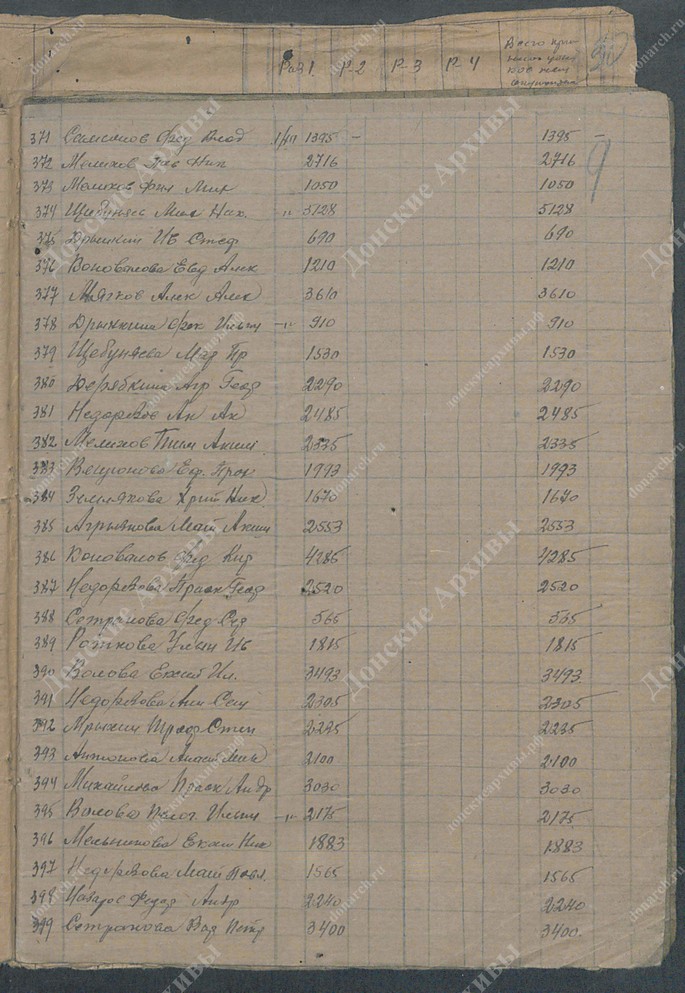 Раз 1. Р-2 Р-3 Р-4 Всего
371 Самсонов Фед Влад 1395 — 1395 —
372 Мелихов Пав Ник 2716 2716
373 Мелихов Фил Мих 1050 1050
9
374 Щебуняев Мих Ник. " 5128 5128
375 Ив Стеф 690 690
376 Коновалова Евд Алек 1210 1210
377 Мягков Алек Алек 3610 3610
378 Дрынкина Фек Ильин —"— 910 910
379 Щебуняева Мар Пр 1530 1530
380 Дерябкина Агр Геор 2290 2290
381 Недорезов Ак Ак 2485 2485
382 Мелихов Тим Аким 2335 2335
383 Еф. Прок 1993 1993
384 Землякова Хрит Ник 1670 1670
385 Мат Аким 2553 2553
386 Коновалов Фед Кир 4285 4285
387 Недорезова Праск Геор 2520 2520
388 Фед 565 565
389 Рожкова Ульян Ив 1815 1815
390 Волова Ил. 3493 3493
391 Недорезова Анн Сем 2305 2305
392 Мрыхин Степ 2235 2235
393 Антонова Анаст Мих 2100 2100
394 Михайлова Праск Андр 3030 3030
395 Волова Пелаг. Ильин —"— 2175 2175
396 Мельникова Екат Ник 1883 1883
397 Недорезова Мат Павл. 1565 1565
398 Федор Андр 2240 2240
399 Петр 3400 3400.
Донские Архивы
donarch.ru
донскиеархивы.рф